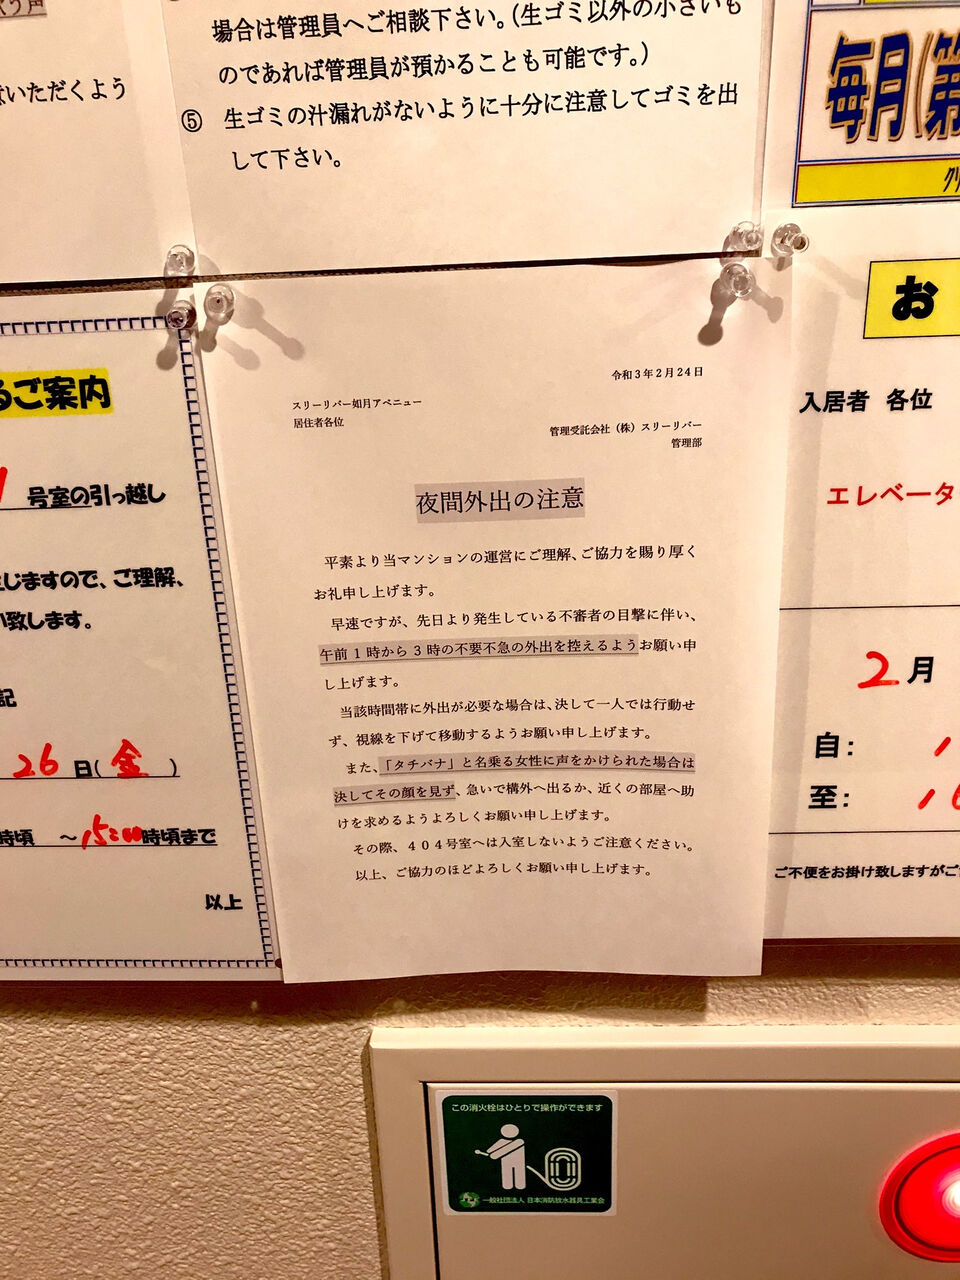 場合は管理員へご相談下さい。（生ゴミ以外の小さいも
のであれば管理員が預かることも可能です。）
⑤ 生ゴミの汁漏れがないように十分に注意してゴミを出
して下さい。
いただくよう
毎月（第
令和３年２月２４日
スリーリバー如月アベニュー
居住者各位
管理受託会社（株）スリーリバー
管理部
夜間外出の注意
平素より当マンションの運営にご理解、ご協力を賜り厚く
お礼申し上げます。
早速ですが、先日より発生している不審者の目撃に伴い、
午前１時から３時の不要不急の外出を控えるようお願い申
し上げます。
当該時間帯に外出が必要な場合は、決して一人では行動せ
ず、視線を下げて移動するようお願い申し上げます。
また、「タチバナ」と名乗る女性に声をかけられた場合は
決してその顔を見ず、急いで構外へ出るか、近くの部屋へ助
けを求めるようよろしくお願い申し上げます。
その際、４０４号室へは入室しないようご注意ください。
以上、ご協力のほどよろしくお願い申し上げます。
るご案内
号室の引っ越し
じますので、ご理解、
致します。
記
26日(金)
時頃 ～15:00時頃まで
以上
お
入居者 各位
エレベータ
2月
自：
至：
ご不便をお掛け致しますがご
この消火栓はひとりで操作ができます
一般社団法人 日本消防放水器具工業会